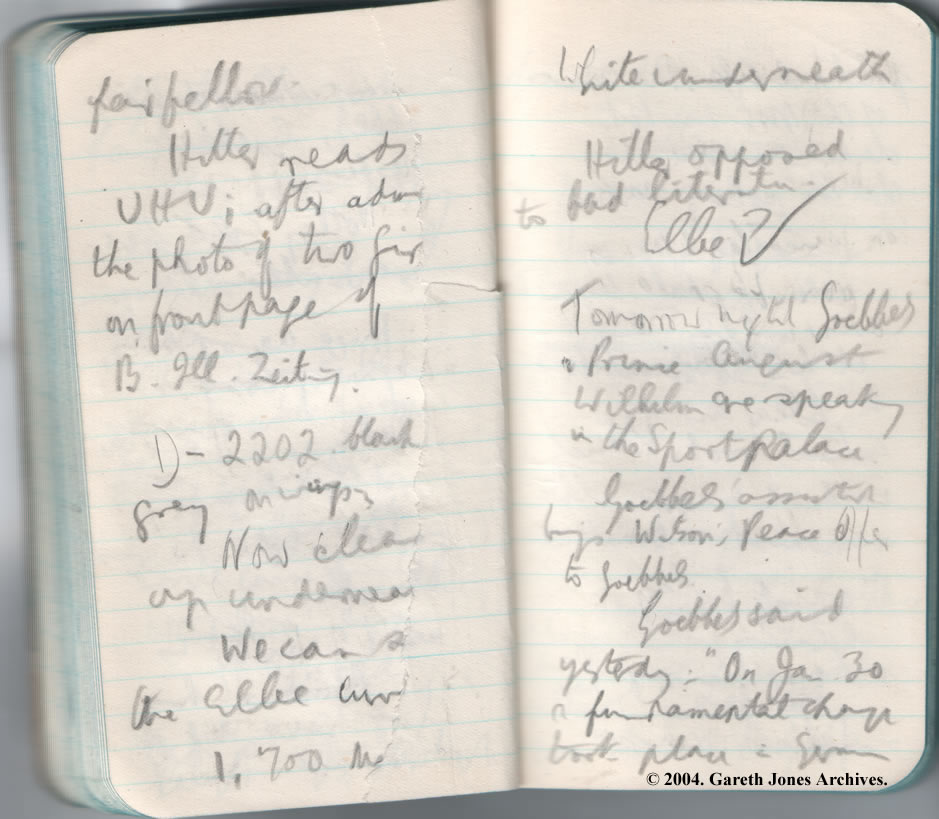 fair fellow.
Hitler reads
UHU; after adm
the photo of two gir
on front page of
B. Ill. Zeitung.
D- 2202 black
grey on wings
Now clear
up undernea
We can s
the Elbe
1,700 M
White underneath
Hitler opposed
to bad literatu
Elbe ?
Tomorrow night Goebbels
Prince August
Wilhelm are speaking
in the Sportpalace
Goebbels' assistant
brings Wilson's Peace Offer
to Goebbels.
Goebbels said
yesterday: "On Jan 30
a fundamental change
took place in German
© 2004. Gareth Jones Archives.